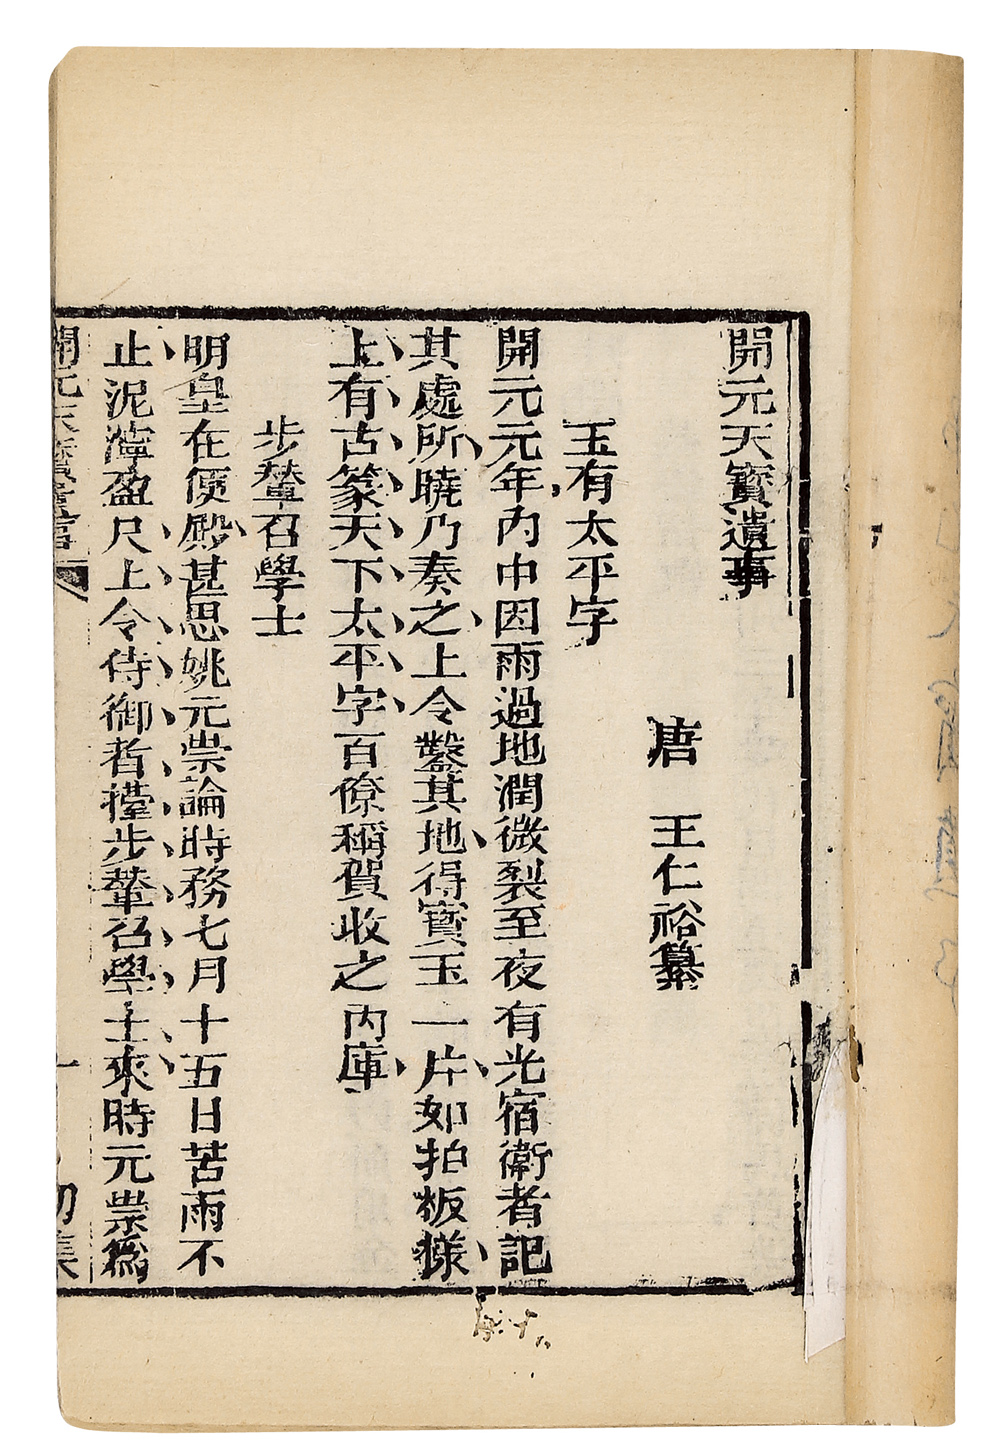 開元天寶遺事
唐　王仁裕纂
玉有太平字
開元元年內中因雨過地潤微裂至夜有光宿衛者記
其處所曉乃奏之上令鑿其地得寶玉一片如拍板樣
上有古篆天下太平字百僚稱賀收之內庫
步輦召學士
明皇在便殿甚思姚元崇論時務七月十五日苦雨不
止泥濘盈尺上令侍御者擡步輦召學士來時元崇爲
開元天寶遺事
一
初集